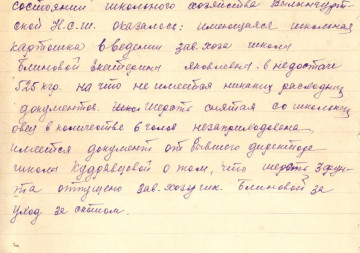 состоянии школьного хозяйства
ской Н.С.Ш. оказалось: имеющаяся школьная
картошка в ведении зав.хоза школы
Блиновой Екатерины Яковлевны в недостаче
525 кгр. на что не имеется никаких расходных
документов. Шерсть снятая со школьных
овец в количестве 6 голов незаприходована
имеется документ от бывшего директора
школы Кудрявцевой о том, что шерсть 3 фун-
та отпущено зав.хозу гик. Блиновой за
уход за скотом.